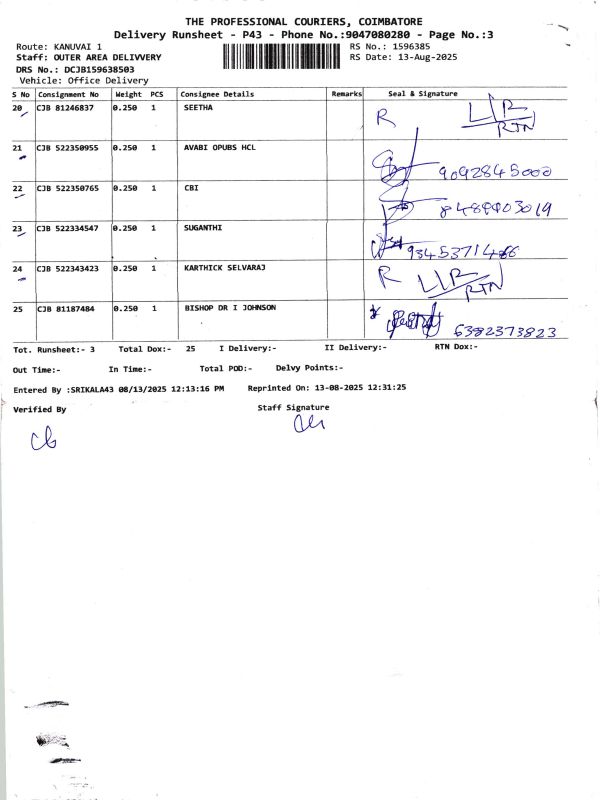 THE PROFESSIONAL COURIERS, COIMBATORE
Delivery Runsheet - P43 - Phone No.:9047080280 - Page No.:3
Route: KANUVAI 1 RS No.: 1596385
Staff: OUTER AREA DELIVVERY RS Date: 13-Aug-2025
DRS No.: DCJB159638503
Vehicle: Office Delivery
S No Consignment No Weight PCS Consignee Details Remarks Seal & Signature
20 CJB 81246837 0.250 1 SEETHA R
RTN
21 CJB 522350955 0.250 1 AVABI OPUBS HCL 9092845000
22 CJB 522350765 0.250 1 CBI 8489903019
23 CJB 522334547 0.250 1 SUGANTHI
24 CJB 522343423 0.250 1 KARTHICK SELVARAJ R
RTN
25 CJB 81187484 0.250 1 BISHOP DR I JOHNSON 6382373823
Tot. Runsheet:- 3 Total Dox:- 25 I Delivery:- II Delivery:- RTN Dox:-
Out Time:- In Time:- Total POD:- Delvy Points:-
Entered By :SRIKALA43 08/13/2025 12:13:16 PM Reprinted On: 13-08-2025 12:31:25
Verified By Staff Signature